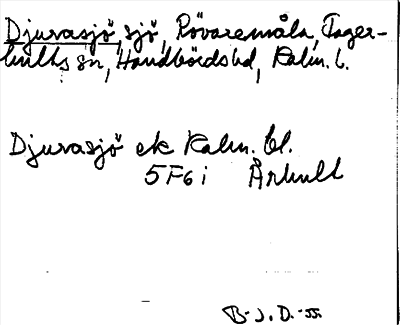 Djurasjö, sjö, Rövaremåla, Fager-
hults sn, Handbörds hd, Kalm. l.
Djurasjö ek Kalm. bl.
5F6i Århult
B-J.D.-55.